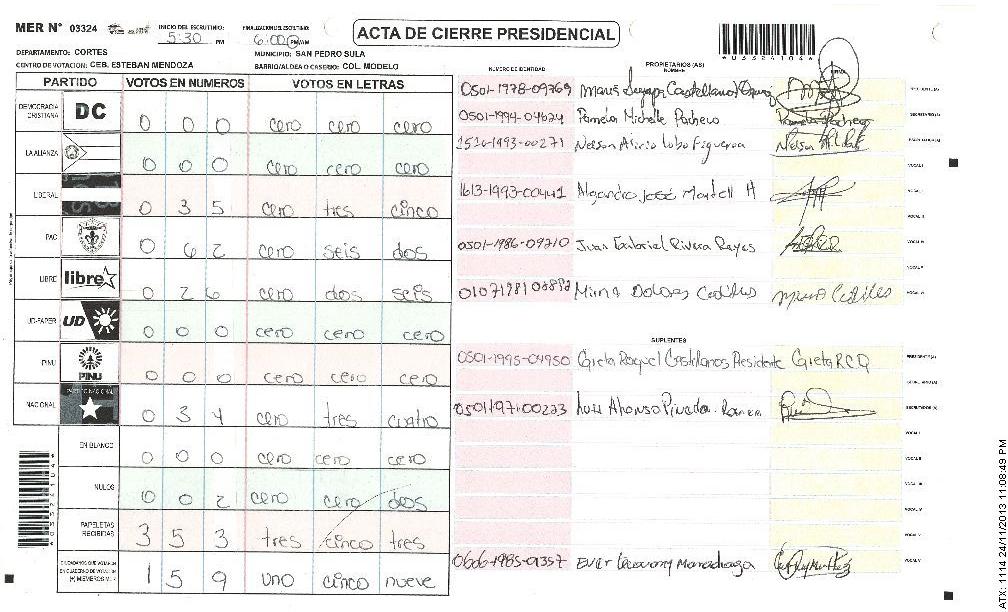 MER N° 03324
INICIO DEL ESCRUTINIO:
5:30 PM
FINALIZACION DEL ESCRUTINIO:
6:00 PM/AM
ACTA DE CIERRE PRESIDENCIAL
*03324104*
DEPARTAMENTO: CORTES
MUNICIPIO: SAN PEDRO SULA
CENTRO DE VOTACION: CEB. ESTEBAN MENDOZA
BARRIO/ALDEA O CASERIO: COL. MODELO
PARTIDO VOTOS EN NUMEROS VOTOS EN LETRAS
DEMOCRACIA CRISTIANA DC 0 0 0 cero cero cero
LA ALIANZA 0 0 0 cero cero cero
LIBERAL 0 3 5 cero tres cinco
PAC 0 62 cero seis dos
LIBRE libre 0 26 cero dos seis
UD-FAPER UD 0 0 0 cero cero cero
PINU PINU 0 0 0 cero cero cero
NACIONAL 0 3 4 cero tres cuatro
EN BLANCO 0 0 0 cero cero cero
NULOS 0 0 2 cero cero dos
PAPELETAS RECIBIDAS 3 5 3 tres cinco tres
1 5 9 uno cinco nueve
NUMERO DE IDENTIDAD
PROPIETARIOS (AS)
NOMBRE
FIRMA
0501-1978-09769 PRESIDENTE (A)
0501-1994-04624 Pamela Michelle Pacheco Pamela Pacheco SECRETARIO (A)
1516-1993-00271 Nelson Alirio Lobo Figueroa
VOCAL I
1613-1993-00441 Alejandro José
0501-1986-09710 Juan Gabriel Rivera Reyes
Mirna Dolores
SUPLENTES
0501-1995-04950 Greta Raquel Castellanos Presidente Greta RCQ PRESIDENTE (A)
SECRETARIO (A)
Luis Alfonso Pineda
VOCAL I
ATX: 1114 24/11/2013 11:08:49 PM